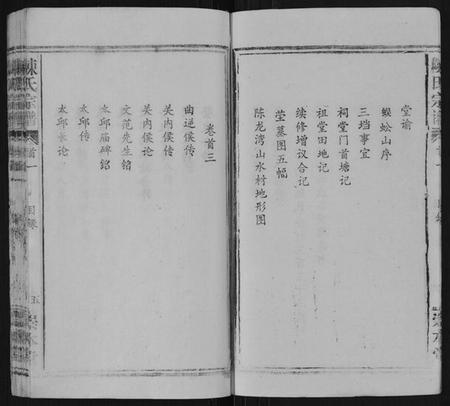 堂谕
蜈蚣山序
三垱事宜
祠堂门首塘记
祖堂田地记
续修增议合记
莹墓图五幅
陈龙湾山水村地形图
卷首三
曲逆侯传
关内侯传
关内侯论
文范先生铭
太邱庙碑铭
太邱传
太邱长论
陳氏宗譜
卷首一
目錄
五